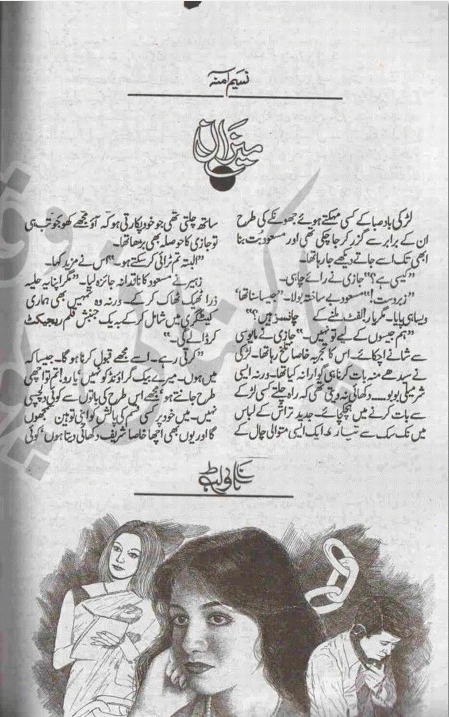 نسیم آمنہ
میزان
لڑکی بادِ صبا کے کسی مہکتے ہوئے جھونکے کی طرح
ان کے برابر سے گزر کر جا چکی تھی اور مسعود بُت بنا
ابھی تک اسے جاتے دیکھے جا رہا تھا۔
"کیسی ہے؟" جازی نے رائے چاہی۔
"زبردست!" مسعود بے ساختہ بولا۔ "جیسا سنا تھا
ویسا ہی پایا۔ مگر یار! لفٹ ملنے کے چانسز ہیں؟"
"ہم جیسوں کے لیے تو نہیں۔" جازی نے مایوسی
سے شانے اچکائے۔ اس کا تجربہ خاصا تلخ رہا تھا۔ لڑکی
نے سیدھے منہ بات کرنا ہی گوارا نہ کیا تھا۔ ورنہ ایسی
شرمیلی بو بو۔ دکھائی نہ دیتی تھی کہ راہ چلتے کسی لڑکے
سے بات کرنے میں ہچکچائے۔ جدید تراش کے لباس
میں تک سک سے تیار، ایک ایسی متوالی چال کے
ساتھ چلتی تھی جو خود پکارتی ہو کہ آؤ مجھے کھوجو تب ہی
تو جازی کا حوصلہ بھی بڑھا تھا۔
"البتہ تم ٹرائی کر سکتے ہو۔" اس نے مزید کہا۔
زبیر نے مسعود کا ناقدانہ جائزہ لیا۔ "مگر اپنا یہ حلیہ
ذرا ٹھیک ٹھاک کر کے۔ ورنہ وہ تمہیں بھی ہماری
کیٹیگری میں شامل کر کے بہ یک جنبش قلم ریجیکٹ
کر ڈالے گی۔"
"کرتی رہے۔ اسے مجھے قبول کرنا ہو گا۔ جیسا کہ
میں ہوں۔ میرے بیک گراؤنڈ کو نہیں' یار و! تم تو اچھی
طرح جانتے ہو مجھے اس طرح کی باتوں سے کوئی دلچسپی
نہیں۔ میں خود پر کسی قسم کی پالش کو اپنی توہین سمجھوں
گا اور یوں بھی اچھا خاصا شریف دکھائی دیتا ہوں' کوئی